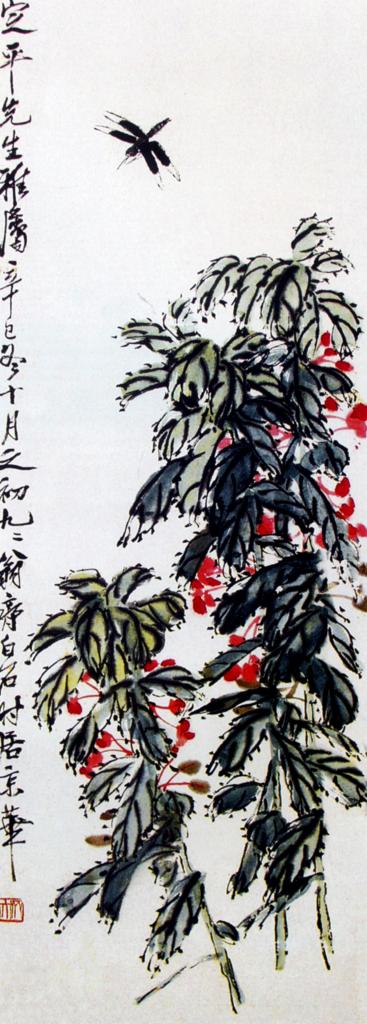 定平先生雅属辛巳冬十月之初九二翁齊白石時居京華